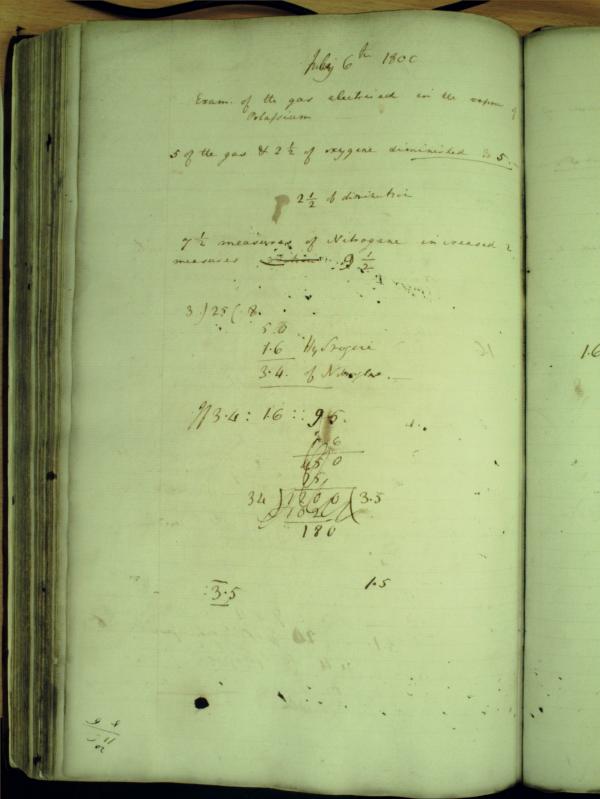 July 6th 1800
Exam. of the gas electrised in the vapor of
Potassium
5 of the gas & 2 1/2 of oxygene diminished to 5.
2 1/2 of diminution
7 1/2 measures of Nitrogene increased 2
measures 9 1/2
3.) 25 ( .8.
5.0
1.6 Hydrogene
3.4. of
3.4 : 1.6 :: 95.
34 ) 1200 ( 3.5
102
180
3.5 1.5
1.6